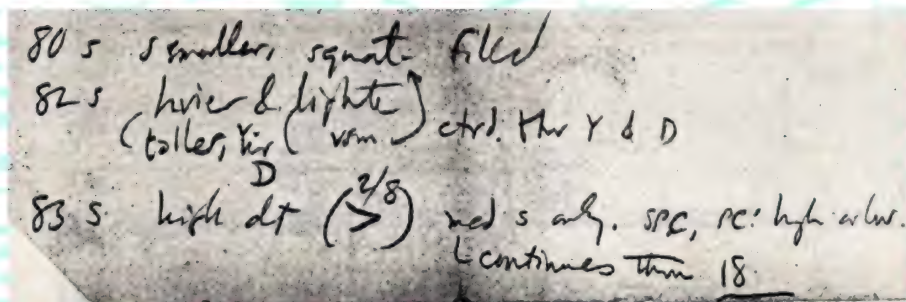 80 s smaller, squat filled
82 s & lighte
(taller, ctrd. thr Y & D
D
83 s high dt (> 2/8) med s only. spc, pc: high or low.
continues thru 18